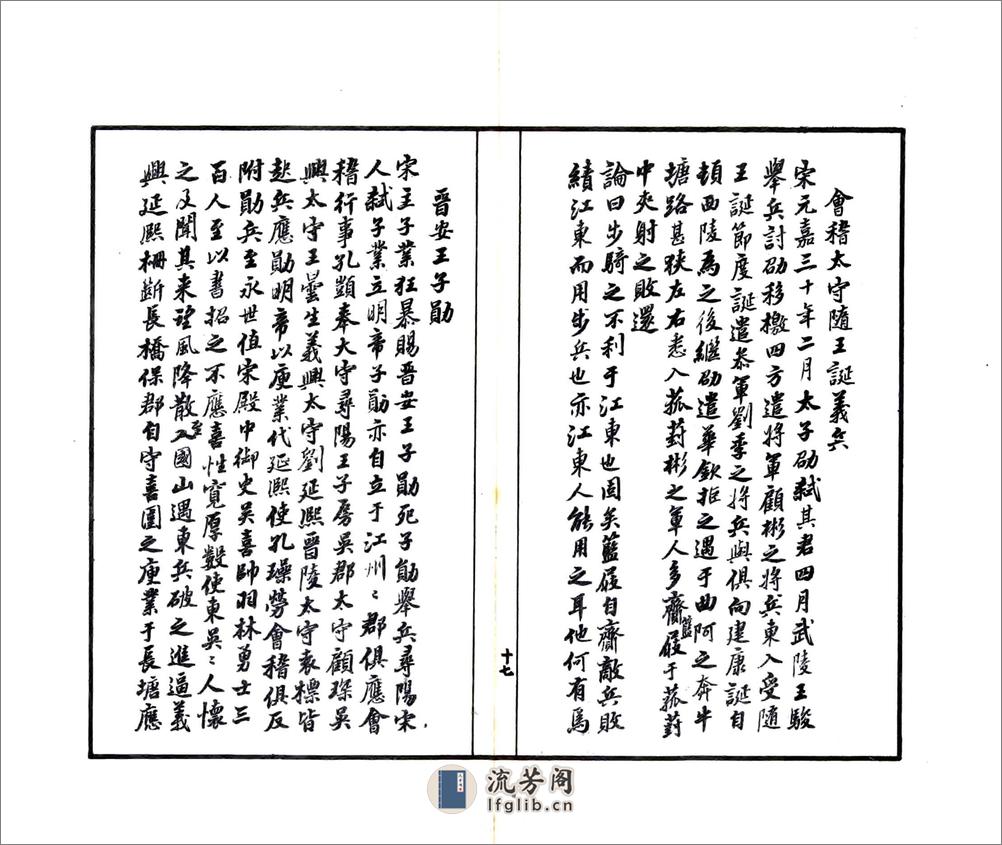 會稽太守隨王誕義兵
宋元嘉三十年二月太子劭弒其君四月武陵王駿
舉兵討劭移檄四方遣將軍顧彬之將兵東入受隨
王誕節度誕遣參軍劉季之將兵與俱向建康誕自
頓西陵為之後繼劭遣華欽拒之遇于曲阿之奔牛
塘路甚狹左右悉入菰葑彬之軍人多齎籃屐于菰葑
中夾射之敗還
論曰步騎之不利于江東也固矣籃屐自齎敵兵敗
績江東而用步兵也亦江東人能用之耳他何有焉
十七
晉安王子勛
宋主子業狂暴賜晉安王子勛死子勛舉兵尋陽宋
人弒子業立明帝子勛亦自立于江州〻郡俱應會
稽行事孔顗奉太守尋陽王子房吳郡太守顧琛吳
興太守王曇生義興太守劉延熙晉陵太守袁標皆
起兵應勛明帝以庾業代延熙使孔璪勞會稽俱反
附勛兵至永世值宋殿中御史吳喜帥羽林勇士三
百人至以書招之不應喜性寬厚數使東吳〻人懷
之及聞其來望風降散至入國山遇東兵破之進逼義
興延熙柵斷長橋保郡自守喜圍之庾業于長塘應
流芳阁
lfglib.cn